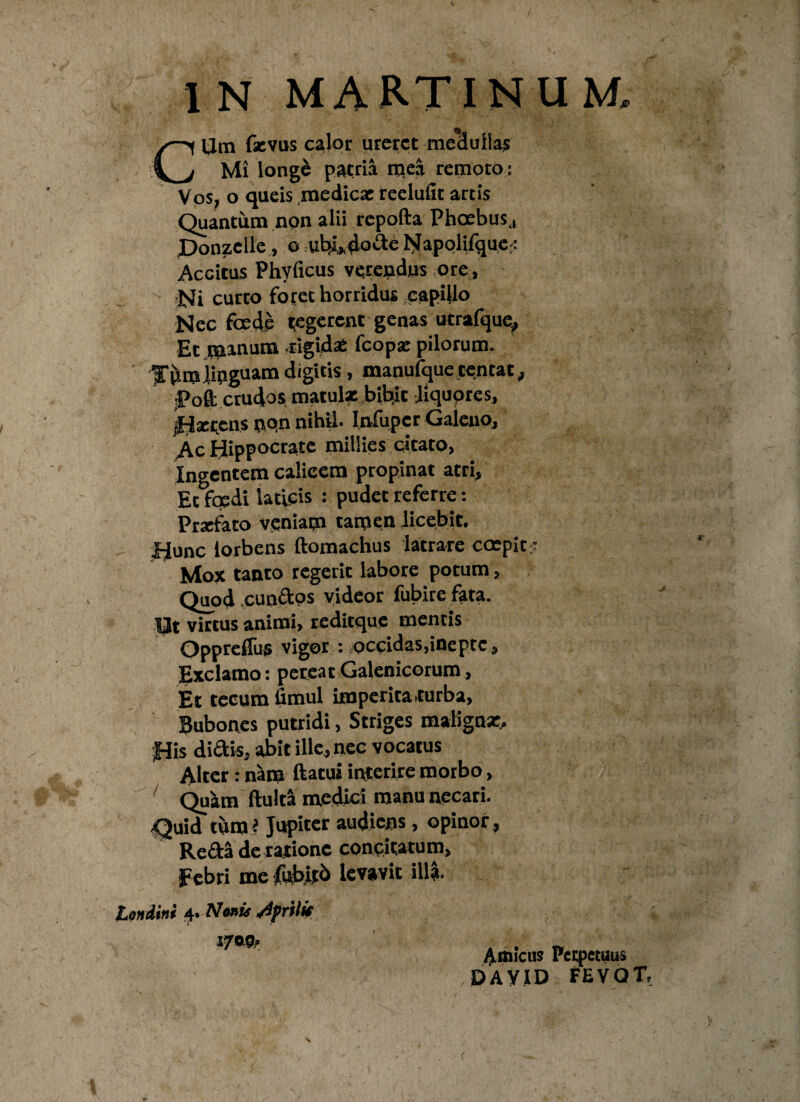 IN MARTINUM.
CUm ſævus calor ureret medullas
Mi longè patriâ meâ remoto:
Vos, o queis medicæ recluſit artis
Quantùm non alii repoſta Phœbus,
Donzelle, o ubi, docte Napoliſque:
Accitus Phyſicus verendus ore,
Ni curto foret horridus capillo
Nec fœdè tegerent genas utraſque,
Et manum rigidæ ſcopæ pilorum.
Tùm linguam digitis, manuſque tentat,
Poſt crudos matulæ bibit liquores,
Hærens non nihil. Inſuper Galeno,
Ac Hippocrate millies citato,
Ingentem calicem propinat atri,
Et fœdi laticis : pudet referre:
Præfato veniam tamen licebit.
Hunc ſorbens ſtomachus latrare cœpit:
Mox tanto regerit labore potum,
Quod cunctos videor ſubire fata.
Ut virtus animi, reditque mentis
Oppreſſus vigor : occidas, inepte,
Exclamo: pereat Galenicorum,
Et tecum ſimul imperita turba,
Bubones putridi, Striges malignæ,
His dictis, abit ille, nec vocatus
Alter : nàm ſtatui interire morbo,
Quàm ſtultâ medici manu necari.
Quid tùm? Jupiter audiens, opinor,
Rectâ de ratione concitatum,
Febri me ſubitò levavit illâ.
Londini 4. Nonis Aprilis
1709.
Amicus Perpetuus
DAVID FEVOT.